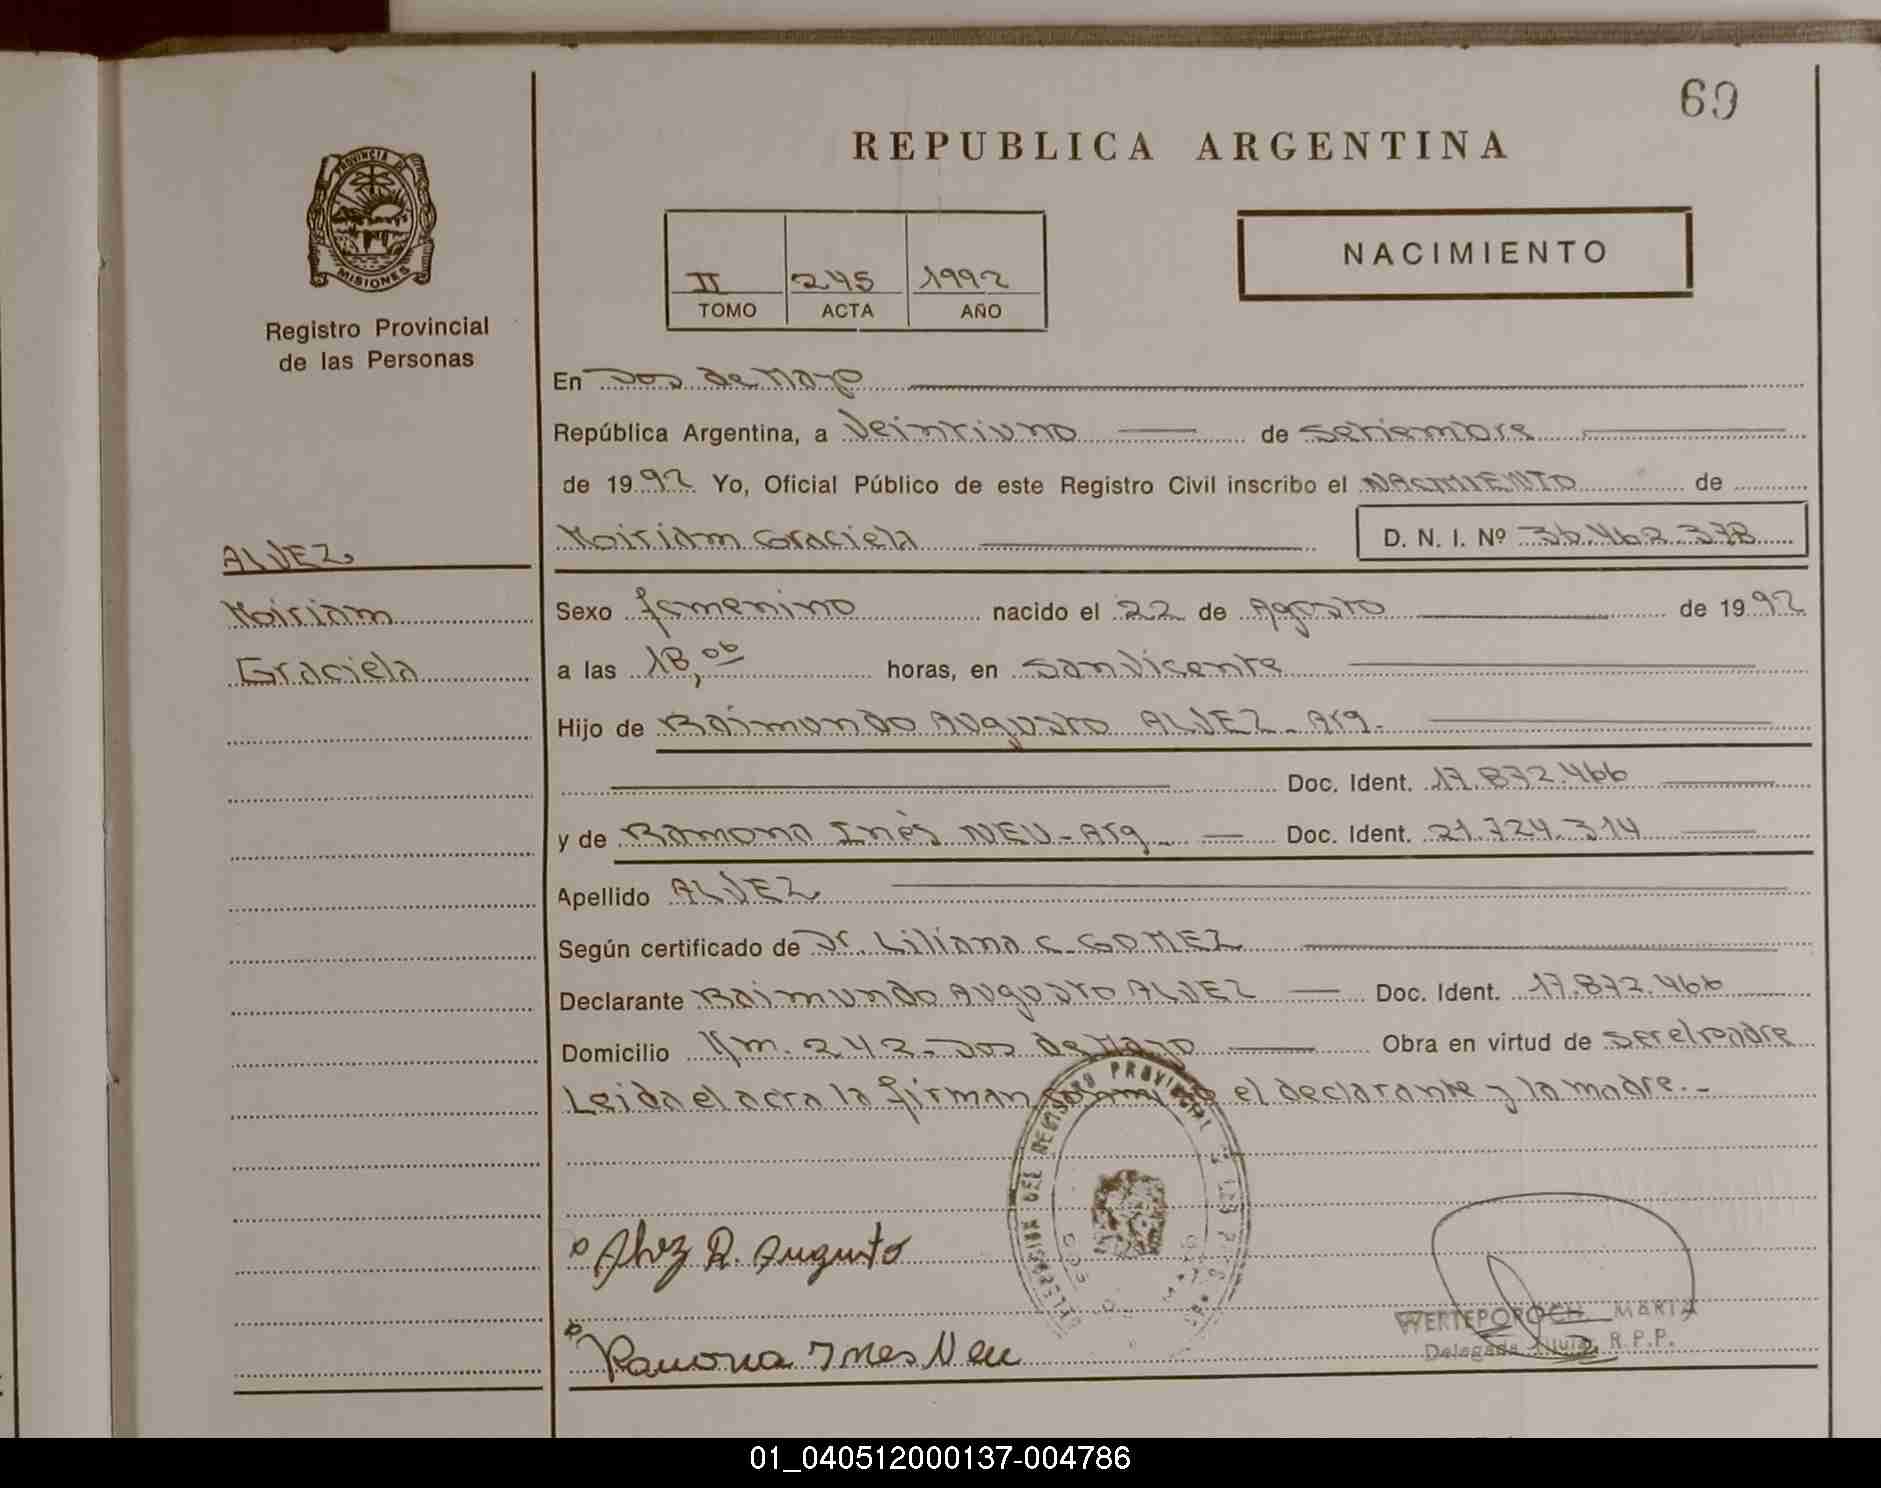 69
REPUBLICA ARGENTINA
PROVINCIA DE
MISIONES
NACIMIENTO
II 245 1992
TOMO ACTA AÑO
Registro Provincial
de las Personas
En Dos de Mayo
República Argentina, a Veintiuno de setiembre
de 1992 Yo, Oficial Público de este Registro Civil inscribo el NACIMIENTO de
Moiriam Graciela D. N. I. Nº 36.462.378
ALVEZ
Moiriam
Graciela
Sexo femenino nacido el 22 de Agosto de 1992
a las 18,00 horas, en San Vicente
Hijo de Raimundo Augusto ALVEZ - Arg.
Doc. Ident. 17.872.466
y de Ramona Inés NEU - Arg. Doc. Ident. 21.724.314
Apellido ALVEZ
Según certificado de Dr. Liliana C. GOMEZ
Declarante Raimundo Augusto ALVEZ Doc. Ident. 17.872.466
Domicilio Km. 242 - Dos de Mayo Obra en virtud de ser el padre
Leida el acta la firman el declarante y la madre.-
DEL REGISTRO PROVINCIAL
Alvez R. Augusto
WERTEPOROCH MARTA
Delegada R.P.P.
Ramona Ines Neu
01_040512000137-004786